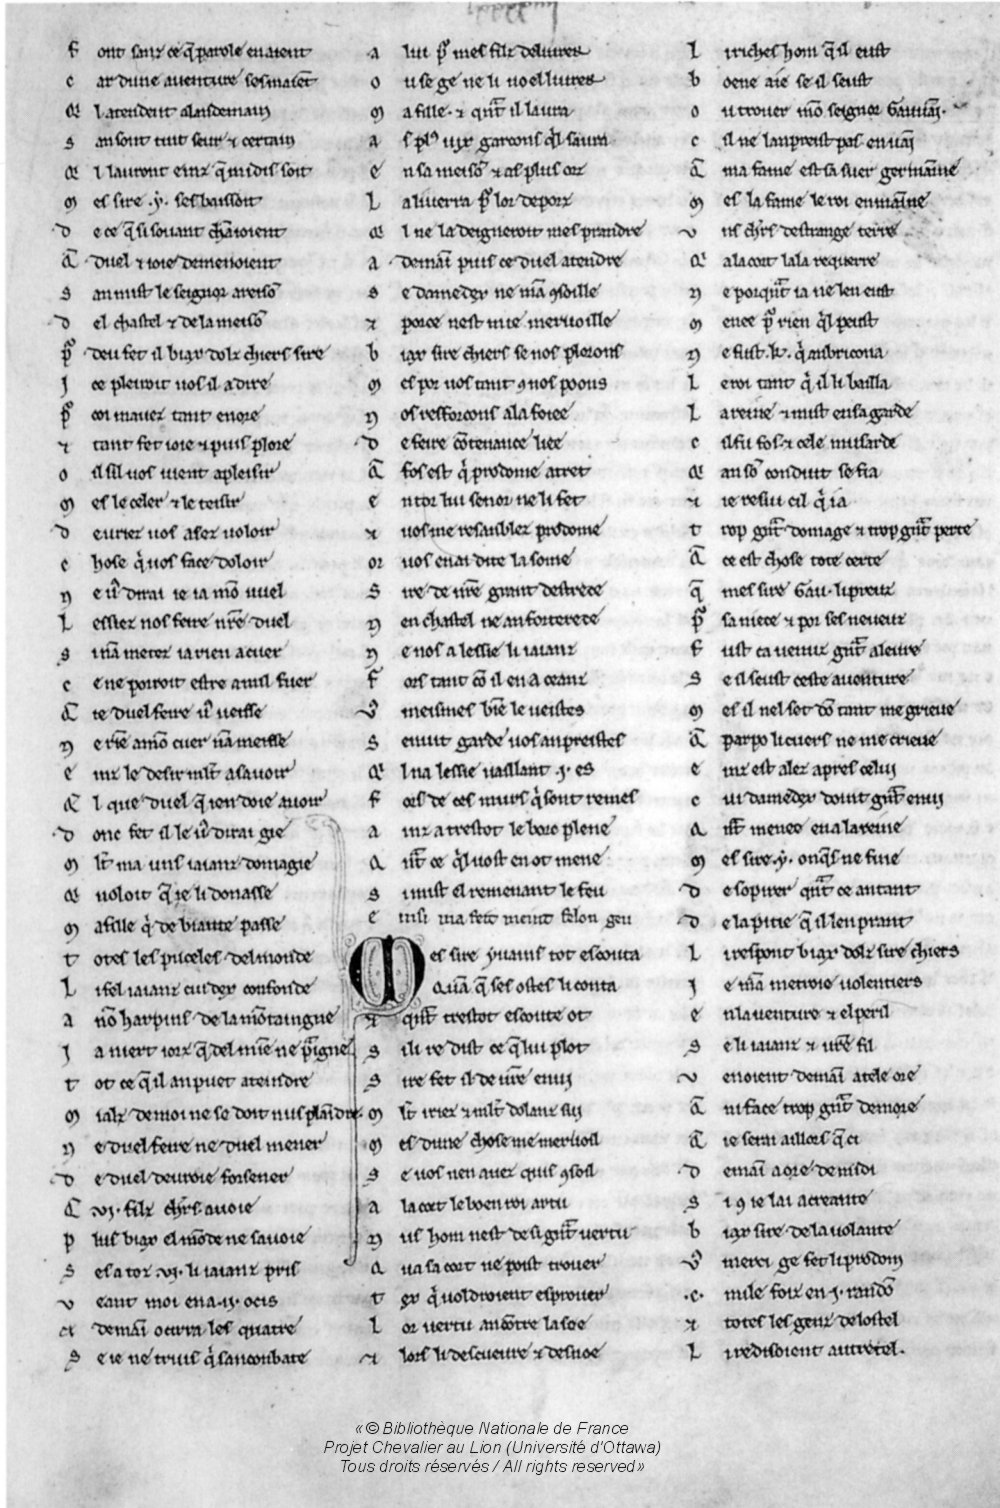 F ont sanz ce q̄ parole en aient
C ar dune auenture sesmaiēt
Q̄ l atendent a landemain
S an sont tuit seur ⁊ certain
Q̄ l lauront einz q̄ midis soit
M es sire .y. ses baissoit
D e ce q̄ si souant chāioient
Q̄ duel ⁊ ioie demenoient
S an mist le seignor a reisō
D el chastel ⁊ de la meisō
P̄ deu fet il biax dolz chiers sire
I ce pleiroit uos il a dire
P̄ coi mauez tant enore
⁊ tant fet ioie ⁊ puis plore
O il sil uos uient a pleisir
M es le celer ⁊ le teisir
D euriez uos asez uoloir
C hose q̇ uos face doloir
N e u̇ dirai ie ia mō uuel
L essiez nos feire nr̄e duel
S inā metez ia rien a cuer
C e ne porroit estre a nul fuer
Q̄ ie duel feire u̇ ueisse
N e riē a mō cuer nā meisse
E inz le desir ml't a sauoir
Q̄ l que duel q̄ ien doie auoir
D onc fet il le u̇ dirai gie
M l't ma uns iaianz domagie
Q̄ uoloit q̄ ie li donasse
M a fille q̇ de biaute passe
T otes les puceles del monde
L i fel iaianz cui dex confonde
A nō harpins de la mōtaingne
I a niert iorz q̄ del miē ne p̄igne
T ot ce q̄ il an puet ateindre
M ialz de moi ne se doit nus plāidre
N e duel feire ne duel mener
D e duel deuroie forsener
Q̄ .vi. filz chr̄s auoie
P lus biax el mōde ne sauoie
S es a toz .vi. li iaianz pris
V eant moi en a .ii. ocis
⁊ demāi ocirra les quatre
S e ie ne truis q̇ san conbate
A lui p̄ mes filz deliurer
O u se ge ne li uoel liurer
M a fille ⁊ qn̄t il laura
A s pl⁹ uix garcons q̇l saura
E n sa meisō ⁊ as plus orz
L a liuerra p̄ lor deporz
Q̄ l ne la deigneroit mes prandre
A demāi puis ce duel atendre
S e damedex ne mā ꝯsoille
⁊ por ce nest mie meruoille
B iax sire chiers se nos plorons
M es por uos tant ꝯ nos poons
N os resforcons a la foiee
D e feire cōtenance liee
Q̄ fos est q̇ prodome atret
E ntor lui senor ne li fet
⁊ uos me resanblez prodome
Or uos en ai dite la some
S ire de nr̄e grant destrece
N en chastel ne an forterece
N e nos a lessie li iaianz
F ors tant cō il en a ceanz
V̇ meismes biē le ueistes
S enuit garde uos an preistes
Q̄ l na lessie uaillant .i. es
F ors de ces murs q̇ sont remes
A inz a trestot le borc plene
Q̄ nt ce q̇l uost en ot mene
S i mist el remenant le feu
E insi ma feit meint felon geu
M es sire yuains tot escouta
Q̄ uā q̄ ses ostes li conta
⁊ qn̄t trestot escoute ot
S i li redist ce q̄ lui plot
S ire fet il de ur̄e enui
M l't iriez ⁊ ml't dolanz sui
M es dune chose me meruoil
S e uos nen auez quis ꝯsoil
A la cort le boen roi artu
N us hom nest de si gn̄t uertu
Q ua sa cort ne poist trouer
T ex q̇ uoldroient esprouer
L or uertu ancōtre la soe
⁊ lors li descueure ⁊ desnoe
L i riches hom q̄ il eust
B oene aie se il seust
O u trouer mō seignor Gauuaī.
C il ne lanpreist pas en uaī
Q̄ ma fame est sa suer germaīne
M es la fame le roi en maīne
V ns chr̄s destrange terre
Q̇ a la cort lala requerre
N e porqn̄t ia ne len eust
M enee p̄ rien q̇l peust
N e fust .k. q̇ anbricona
L e roi tant q̇ il li bailla
L a reine ⁊ mist en sa garde
C il fu fos ⁊ cele musarde
Q̇ an sō conduit se fia
⁊ ie resui cil q̇ i a
T rop gn̄t domage ⁊ trop gn̄t perte
Q̄ ce est chose tote certe
Q̄ mes sire Gau. li preuz
P̄ sa niece ⁊ por ses neueuz
F ust ca uenuz gn̄t aleure
S e il seust ceste auenture
M es il nel set dō tant me grieue
Q̄ par po li cuers ne me crieue
E inz est alez apres celui
C ui damedex doint gn̄t enui
Q̄ nt menee en a la reine
M es sire .y. onq̄s ne fine
D e sopirer qn̄t ce antant
D e la pitie q̄ il len prant
L i respont biax dolz sire chiers
I e mā metroie uolentiers
E n lauenture ⁊ el peril
S e li iaianz ⁊ ur̄e fil
V enoient demāi a tele ore
Q̄ ni face trop gn̄t demore
Q̄ ie serai aillors q̄ ci
D emāi a ore de midi
S i ꝯ ie lai acreante
B iax sire de la uolante
V̇ merci ge fet li prodom
.C. mile foiz en .i. randō
⁊ totes les genz de lostel
L i redisoient autretel.
« © Bibliothèque Nationale de France
Projet Chevalier au Lion (Université d'Ottawa)
Tous droits réservés / All rights reserved»